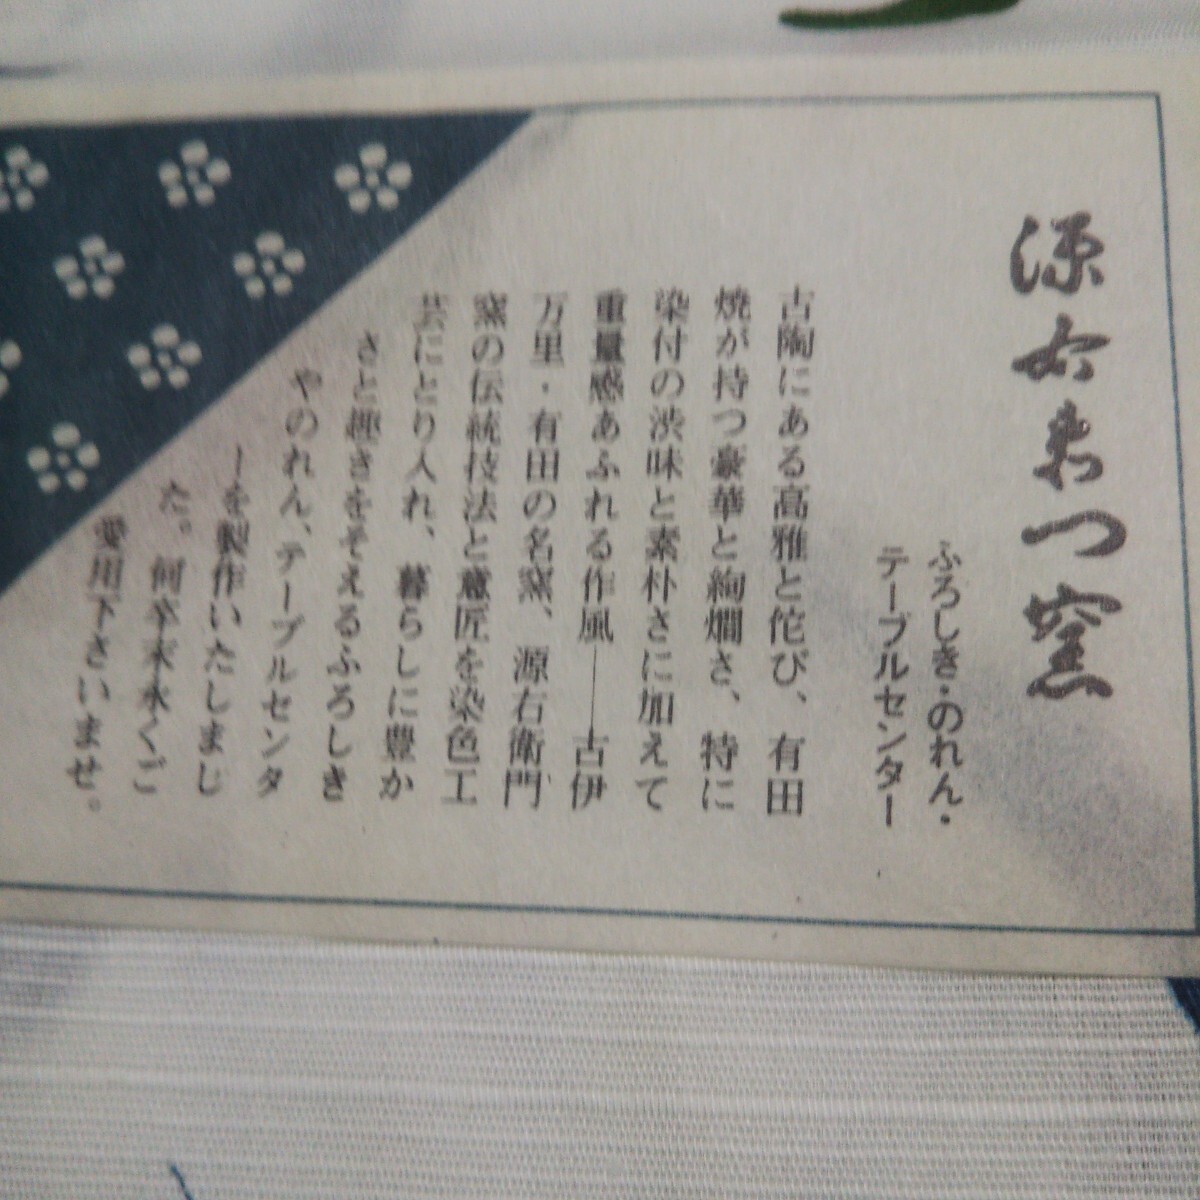 源右衛門窯
ふろしき・のれん・
テーブルセンター
古陶にある高雅と侘び、有田
焼が持つ豪華と絢爛さ、特に
染付の渋味と素朴さに加えて
重量感あふれる作風――古伊
万里・有田の名窯、源右衛門
窯の伝統技法と意匠を染色工
芸にとり入れ、暮らしに豊か
さと趣きをそえるふろしき
やのれん、テーブルセンタ
ーを製作いたしまし
た。何卒末永くご
愛用下さいませ。